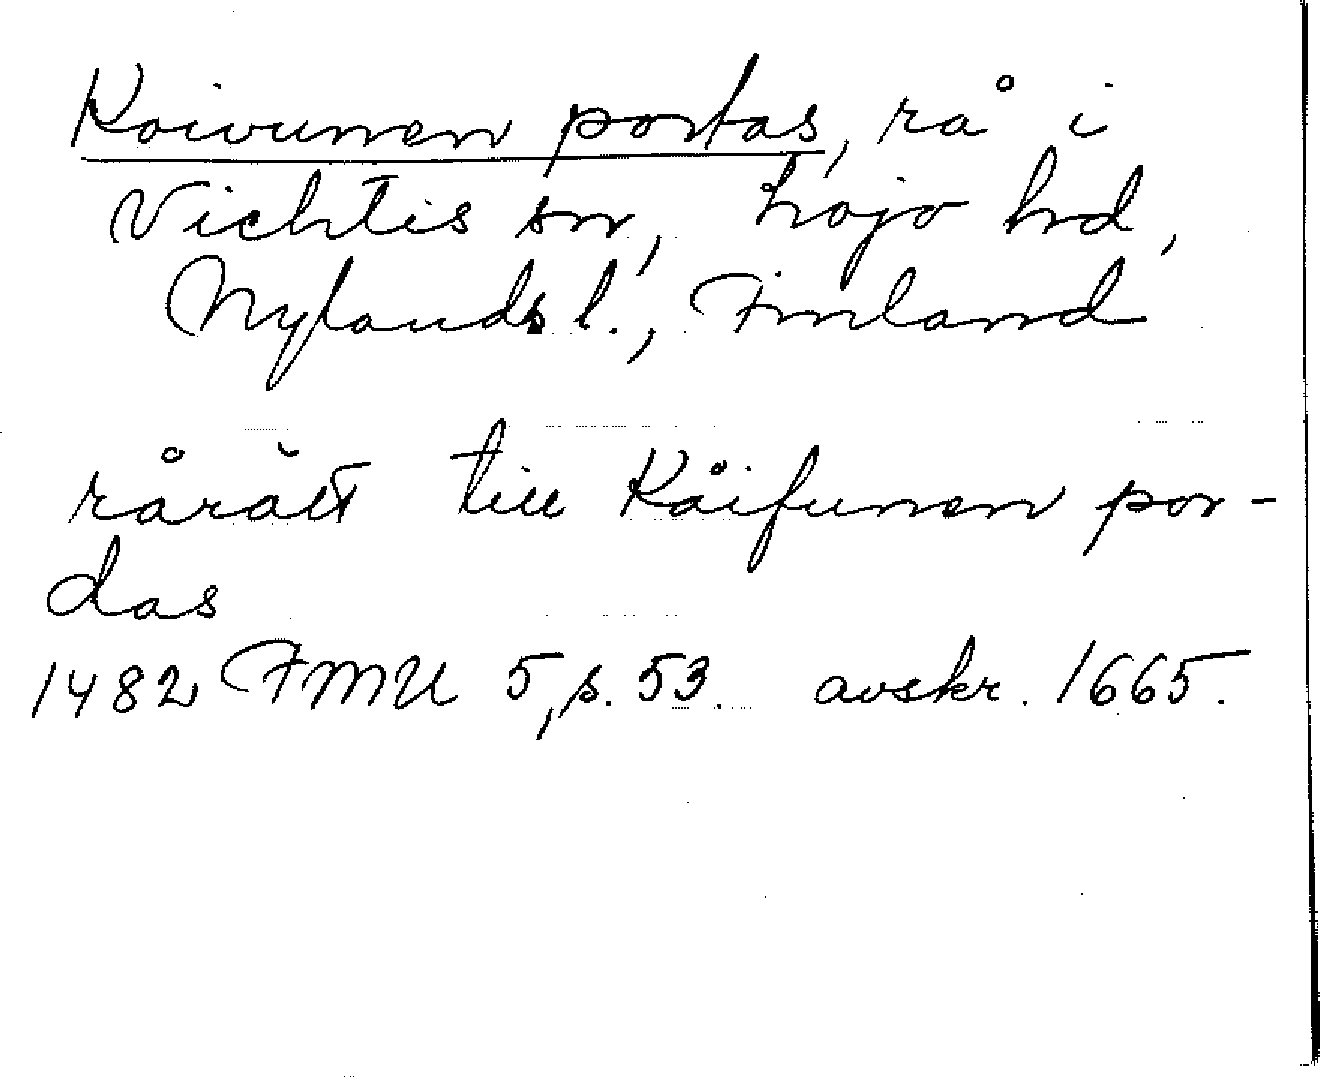 Koivunen portas, rå i
Vichtis sn, Lojo hd,
Nylands l., Finland
rårätt till Kåifunen por-
das
1482 FMU 5, s. 53. avskr. 1665.